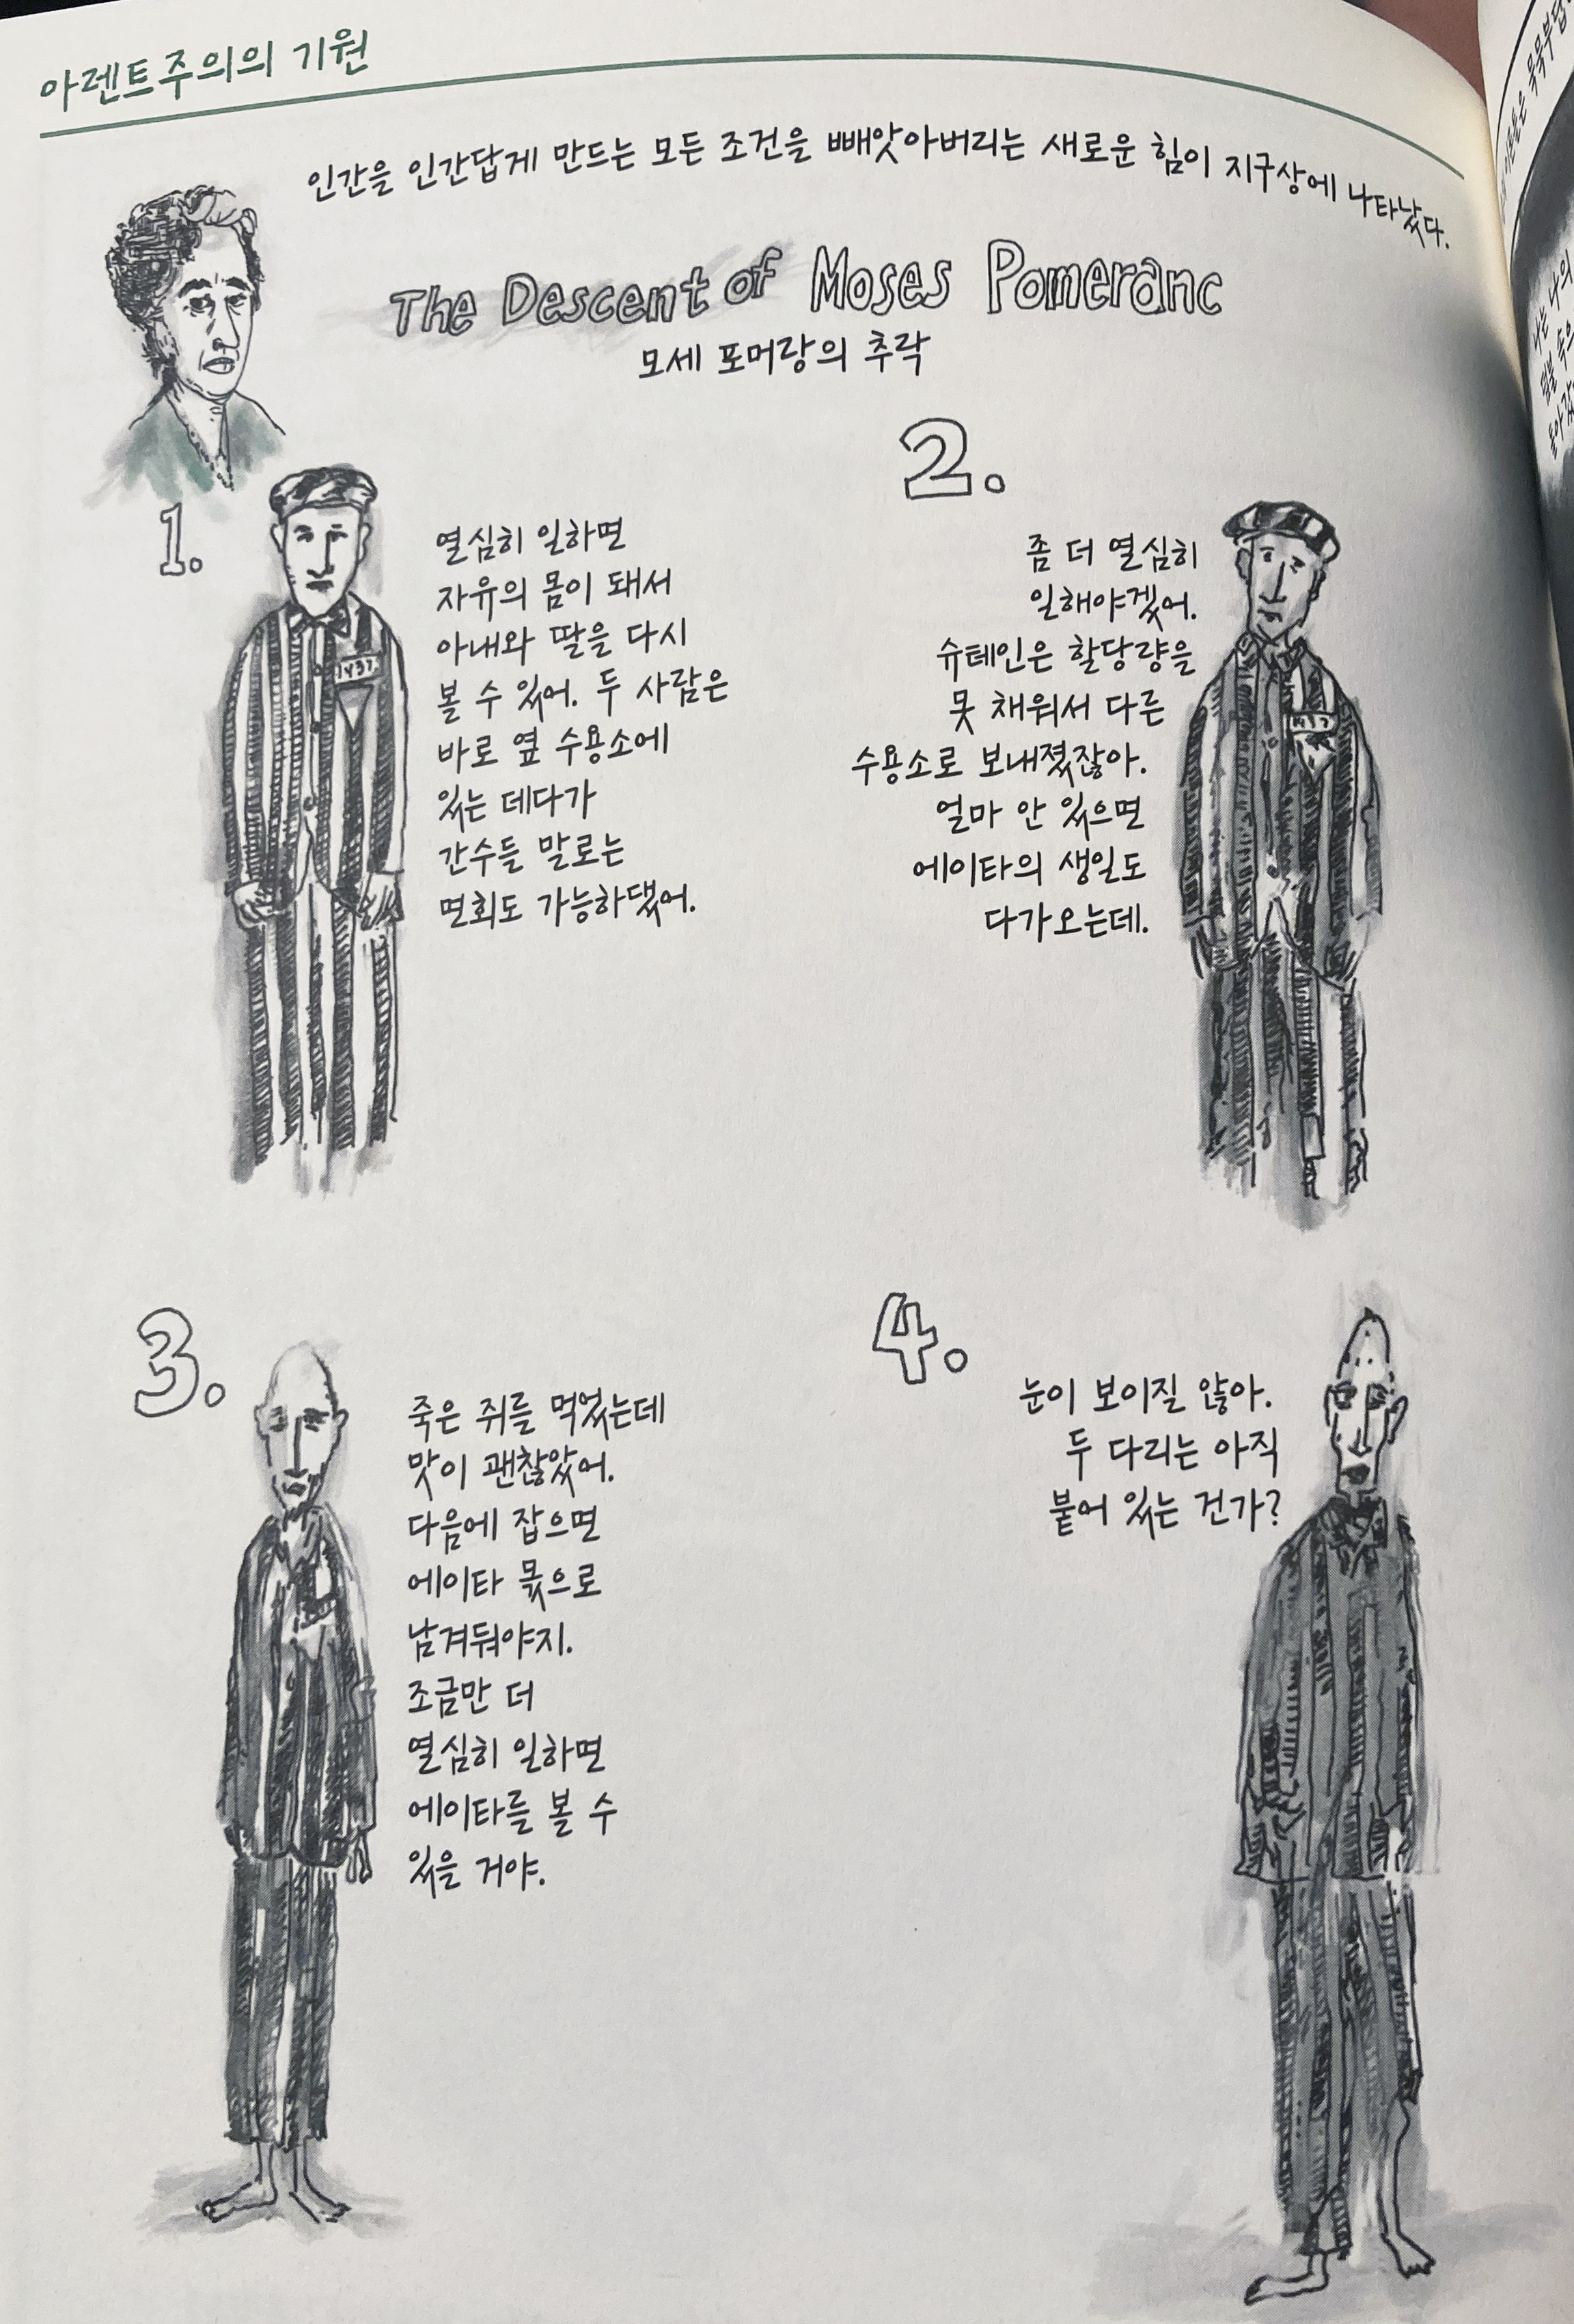 아렌트주의의 기원
인간을 인간답게 만드는 모든 조건을 빼앗아버리는 새로운 힘이 지구상에 나타났다.
The Descent of Moses Pomeranc
모세 포머랑의 추락
1.
열심히 일하면
자유의 몸이 돼서
아내와 딸을 다시
볼 수 있어. 두 사람은
바로 옆 수용소에
있는 데다가
간수들 말로는
면회도 가능하댔어.
1437
2.
좀 더 열심히
일해야겠어.
슈테인은 할당량을
못 채워서 다른
수용소로 보내졌잖아.
얼마 안 있으면
에이타의 생일도
다가오는데.
1437
3.
죽은 쥐를 먹었는데
맛이 괜찮았어.
다음에 잡으면
에이타 몫으로
남겨둬야지.
조금만 더
열심히 일하면
에이타를 볼 수
있을 거야.
4.
눈이 보이질 않아.
두 다리는 아직
붙어 있는 건가?
나는 나의